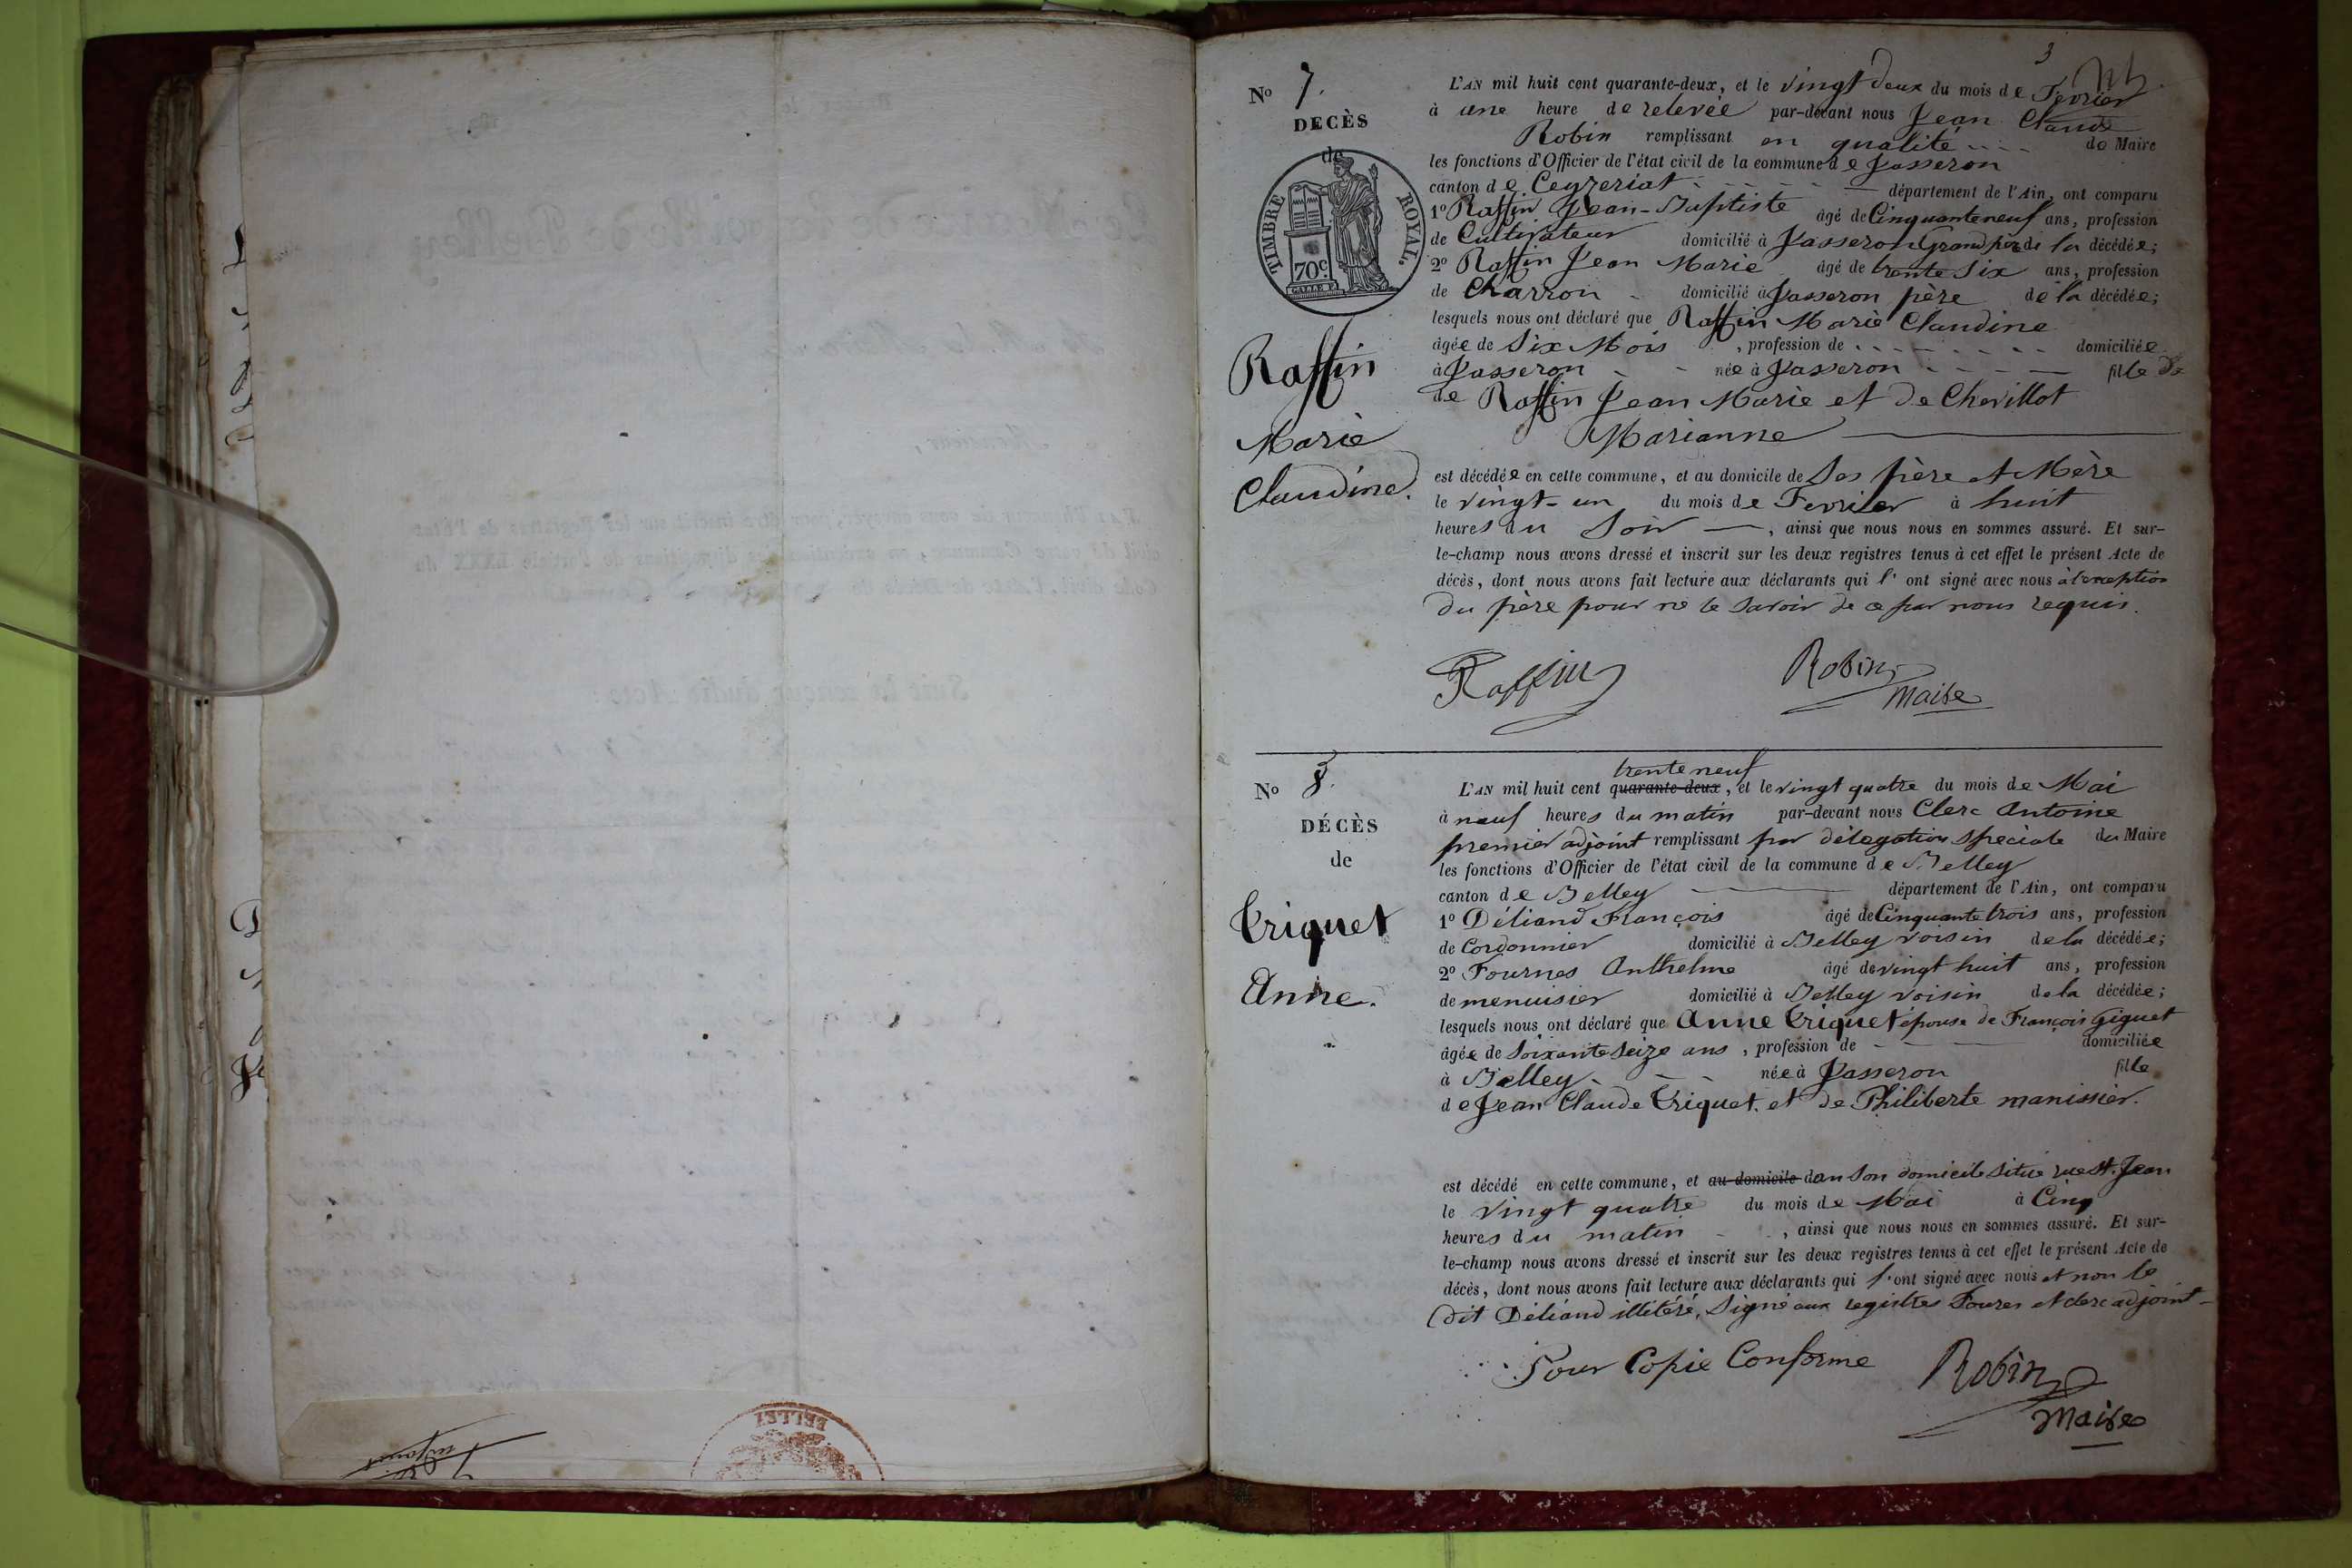 3
No 7.
DECÈS
de
TIMBRE ROYAL.
70c.
Raffin
Marie
Claudine.
L'AN mil huit cent quarante-deux, et le vingt deux du mois de Fevrier
à une heure de relevée par-devant nous Jean Claude
Robin remplissant en qualité de Maire
les fonctions d'Officier de l'état civil de la commune de Jasseron
canton de Ceyzeriat département de l'Ain, ont comparu
1o Raffin Jean-Baptiste âgé de Cinquante neuf ans, profession
de Cultivateur domicilié à Jasseron Grand père de la décédée;
2o Raffin Jean Marie âgé de trente six ans, profession
de Charron domicilié à Jasseron père de la décédée;
lesquels nous ont déclaré que Raffin Marie Claudine
âgée de Six Mois, profession de domiciliée
à Jasseron née à Jasseron fille de
de Raffin Jean Marie et de Chevillot
Marianne
est décédée en cette commune, et au domicile de Ses père et Mère
le vingt-un du mois de Fevrier à huit
heures du Soir, ainsi que nous nous en sommes assuré. Et sur-
le-champ nous avons dressé et inscrit sur les deux registres tenus à cet effet le présent Acte de
décès, dont nous avons fait lecture aux déclarants qui l' ont signé avec nous à l'exception
du père pour ne le savoir de ce par nous requis.
Raffin Robin
Maire
No 8.
DÉCÈS
de
Triquet
Anne.
trente neuf
L'AN mil huit cent quarante-deux, et le vingt quatre du mois de Mai
à neuf heures du matin par-devant nous Clerc Antoine
premier adjoint remplissant par délégation spéciale du Maire
les fonctions d'Officier de l'état civil de la commune de Belley
canton de Belley département de l'Ain, ont comparu
1o Déliand François âgé de Cinquante trois ans, profession
de Cordonnier domicilié à Belley voisin de la décédée;
2o Fournes Anthelme âgé de vingt huit ans, profession
de menuisier domicilié à Belley voisin de la décédée;
lesquels nous ont déclaré que Anne Triquet épouse de François Giguet
âgée de Soixante Seize ans, profession de domiciliée
à Belley née à Jasseron fille
de Jean Claude Triquet et de Philiberte manissier.
est décédé en cette commune, et au domicile dan Son domicile Situé rue St. Jean
le vingt quatre du mois de Mai à Cinq
heures du matin, ainsi que nous nous en sommes assuré. Et sur-
le-champ nous avons dressé et inscrit sur les deux registres tenus à cet effet le présent Acte de
décès, dont nous avons fait lecture aux déclarants qui l'ont signé avec nous et non le
dit Déliand illitéré, Signé aux registres Foures et clerc adjoint
Pour Copie Conforme Robin
Maire
BELLEY